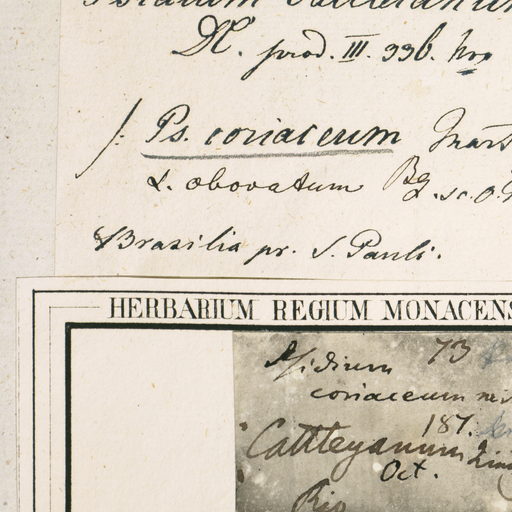 Cattleyanum
DC. prod. III. 236. non
/: Ps. coriaceum Mart
α. obovatum Bg
Brasilia pr. S. Pauli.
HERBARIUM REGIUM MONACENS
Psidium 73
coriaceum
187.
Cattleyanum
Oct.
Rio